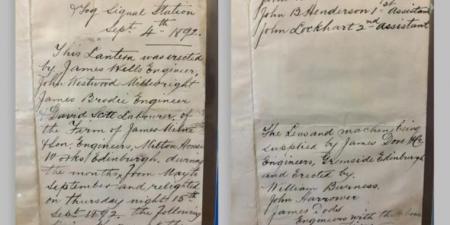 & Fog Signal Station
Sept 4th 1892.
This Lantern was erected
by James Wells Engineer,
John Westwood Millwright
James Brodie Engineer
David Scott Labourer, of
the Firm of James Milne
& Son, Engineers, Milton House
Works, Edinburgh, during
the months from May to
September and relighted
on Thursday night 15th
Sept 1892. the following
John B Henderson 1st assistant
John Lockhart 2nd assistant
The Lens and machine being
supplied by James Dove & Co
Engineers, Greenside Edinburgh
and erected by
William Burness.
John Harrower
James Dods
Engineers with the above